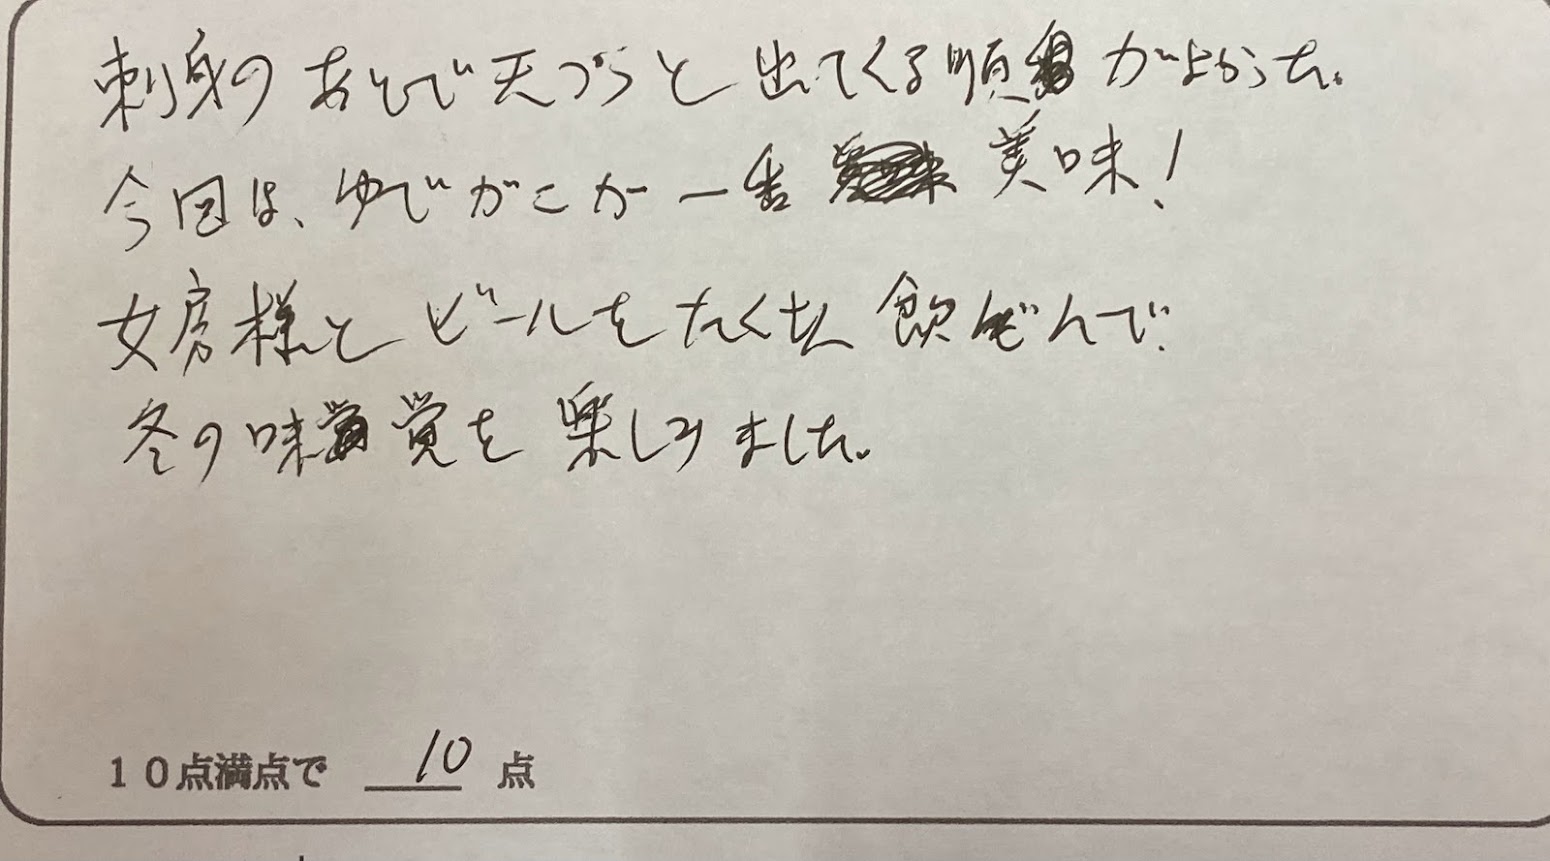 刺身のあとで天づらと出てくる順がよかった。
今回は、ゆでがにが一番美味！
女房様とビールをたくさん飲んで
冬の味覚を楽しみました。
10点満点で 10 点